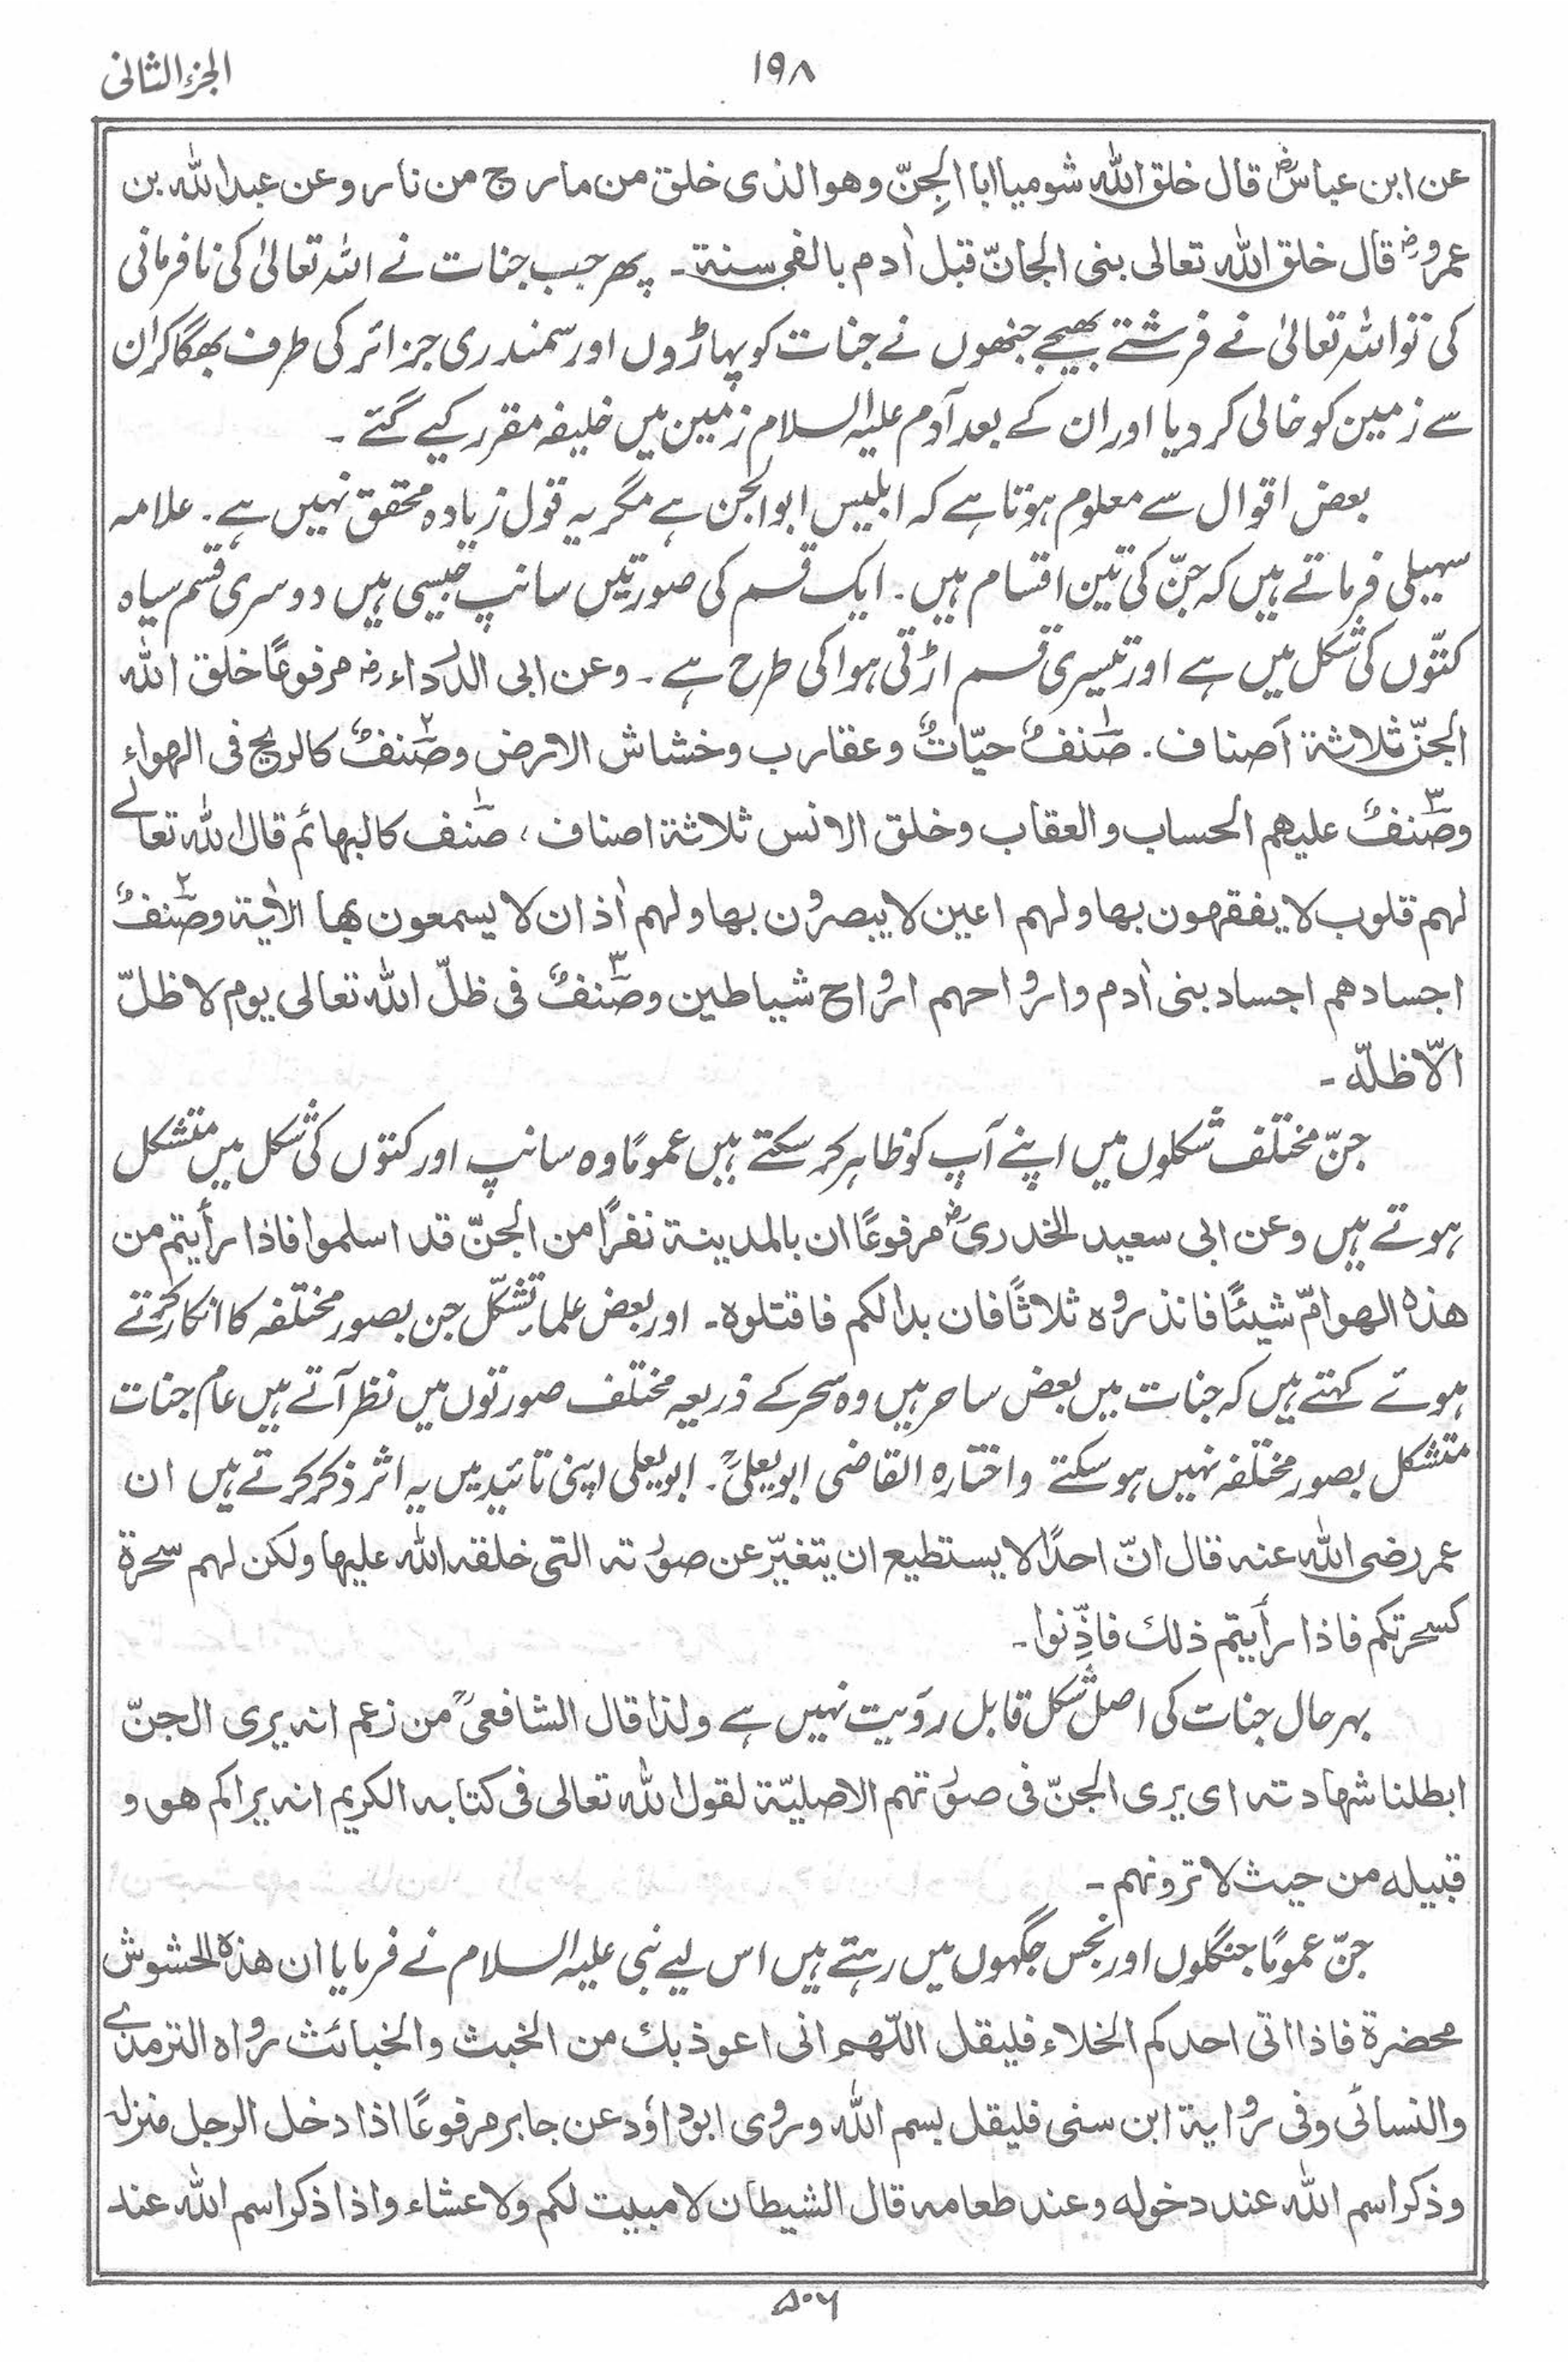 الجزء الثانی
۱۹۸
عن ابن عباسؓ قال خلق اللہ شومیا ابا الجِنّ وھو الذی خلق من مارج من نار وعن عبداللہ بن
عمروؓ قال خلق اللہ تعالی بنی الجانّ قبل اٰدم بالفی سنة ۔ پھر جب جنات نے اللہ تعالیٰ کی نافرمانی
کی تو اللہ تعالیٰ نے فرشتے بھیجے جنھوں نے جنات کو پہاڑوں اور سمندری جزائر کی طرف بھگا کر ان
سے زمین کو خالی کر دیا اور ان کے بعد آدم علیہ السلام زمین میں خلیفہ مقرر کیے گئے ۔
بعض اقوال سے معلوم ہوتا ہے کہ ابلیس ابوالجن ہے مگر یہ قول زیادہ محقق نہیں ہے ۔ علامہ
سہیلی فرماتے ہیں کہ جنّ کی تین اقسام ہیں ۔ ایک قسم کی صورتیں سانپ جیسی ہیں دوسری قسم سیاہ
کتّوں کی شکل میں ہے اور تیسری قسم اڑتی ہوا کی طرح ہے ۔ وعن ابی الدرداء رضؓ مرفوعًا خلق اللہ
الجنّ ثلاثة اَصناف ۔ صنفٌ۱ حیّاتٌ وعقارب وخشاش الارض وصنفٌ۲ کالریح فی الھواء
وصنفٌ۳ علیھم الحساب والعقاب وخلق الانس ثلاثة اصناف ، صنف۱ کالبھائم قال اللہ تعالے
لھم قلوب لا یفقھون بھا ولھم اعین لا یبصرون بھا ولھم اٰذان لا یسمعون بھا الاٰیة وصنفٌ۲
اجسادھم اجساد بنی اٰدم وارواحھم ارواح شیاطین وصنفٌ۳ فی ظلّ اللہ تعالی یوم لا ظلّ
الّا ظلّہ ۔
جنّ مختلف شکلوں میں اپنے آپ کو ظاہر کر سکتے ہیں عمومًا وہ سانپ اور کتوں کی شکل میں متشکل
ہوتے ہیں وعن ابی سعید الخدریؓ مرفوعًا ان بالمدینة نفرًا من الجنّ قد اسلموا فاذا رأیتم من
ھذہ الھوامّ شیئًا فانذروہ ثلاثًا فان بدا لکم فاقتلوہ ۔ اور بعض علماء تشکّل جن بصور مختلفہ کا انکار کرتے
ہوئے کہتے ہیں کہ جنات میں بعض ساحر ہیں وہ سحر کے ذریعہ مختلف صورتوں میں نظر آتے ہیں عام جنات
متشکل بصور مختلفہ نہیں ہو سکتے واختارہ القاضی ابویعلیؒ ۔ ابویعلی اپنی تائید میں یہ اثر ذکر کرتے ہیں ان
عمر رضی اللہ عنہ قال انّ احدًا لا یستطیع ان یتغیّر عن صورتہ التی خلقہ اللہ علیھا ولکن لھم سحرة
کسحرتکم فاذا رأیتم ذلك فاذِّنوا ۔
بہرحال جنات کی اصل شکل قابل رؤیت نہیں ہے ولذا قال الشافعیؒ من زعم انہ یری الجنّ
ابطلنا شھادتہ ای یری الجنّ فی صورتھم الاصلیّة لقول اللہ تعالی فی کتابہ الکریم انہ یراکم ھو و
قبیلہ من حیث لا ترونھم ۔
جنّ عمومًا جنگلوں اور نجس جگہوں میں رہتے ہیں اس لیے نبی علیہ السلام نے فرمایا ان ھذہ الحشوش
محضرة فاذا اتی احدکم الخلاء فلیقل اللّٰھم انی اعوذ بك من الخبث والخبائث رواہ الترمذے
والنسائی وفی روایة ابن سنی فلیقل بسم اللہ وروی ابوداؤد عن جابر مرفوعًا اذا دخل الرجل منزلہ
وذکر اسم اللہ عند دخولہ وعند طعامہ قال الشیطان لا مبیت لکم ولا عشاء واذا ذکر اسم اللہ عند
۵۰۶